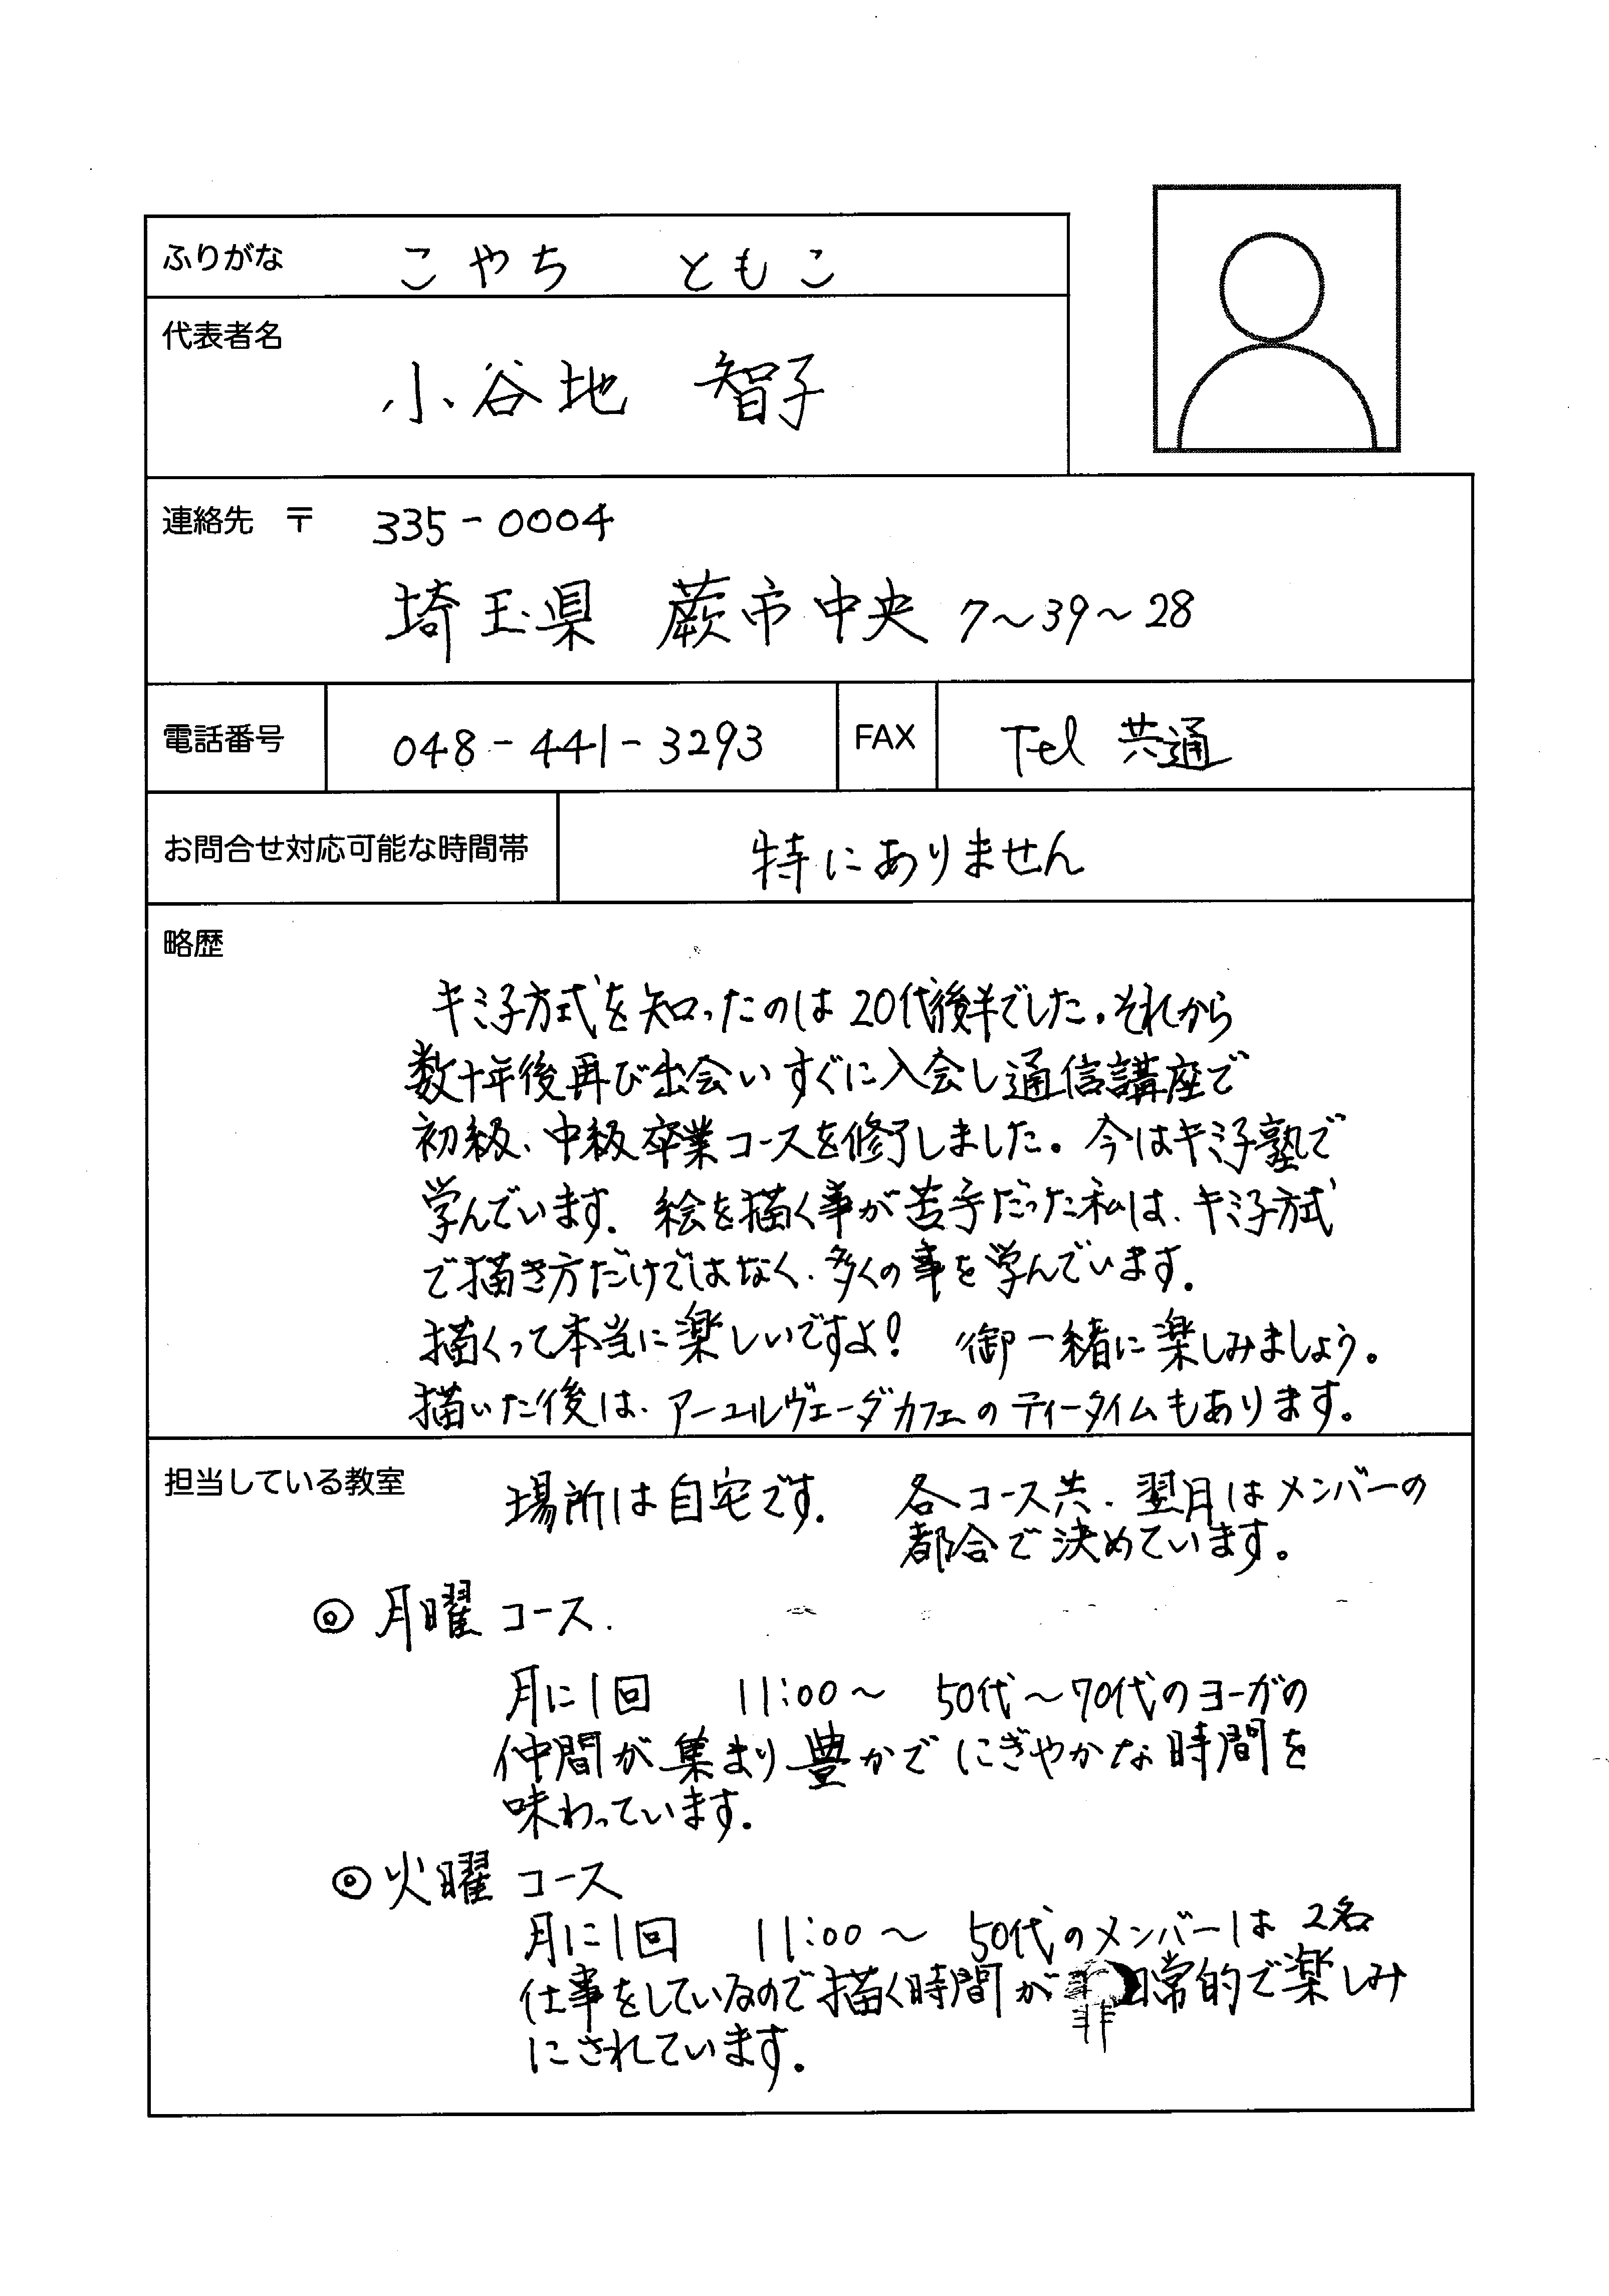 ふりがな こやち ともこ
代表者名
小谷地 智子
連絡先 〒 335-0004
埼玉県 蕨市中央 7～39～28
電話番号 048-441-3293 FAX Tel 共通
お問合せ対応可能な時間帯 特にありません
略歴
キミ子方式を知ったのは20代後半でした。それから
数十年後再び出会いすぐに入会し通信講座で
初級、中級卒業コースを修了しました。今はキミ子塾で
学んでいます。絵を描く事が苦手だった私は、キミ子方式
で描き方だけではなく、多くの事を学んでいます。
描くって本当に楽しいですよ! 御一緒に楽しみましょう。
描いた後は、アーユルヴェーダカフェのティータイムもあります。
担当している教室 場所は自宅です。 各コース共、翌月はメンバーの
都合で決めています。
◎月曜コース.
月に1回 11:00～ 50代～70代のヨーガの
仲間が集まり豊かでにぎやかな時間を
味わっています。
◎火曜コース
月に1回 11:00～ 50代のメンバーは 2名
仕事をしているので描く時間が非日常的で楽しみ
にされています。